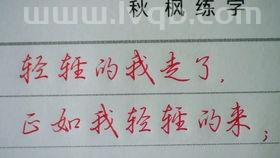 秋枫练字
轻轻的我走了，
正如我轻轻的来；